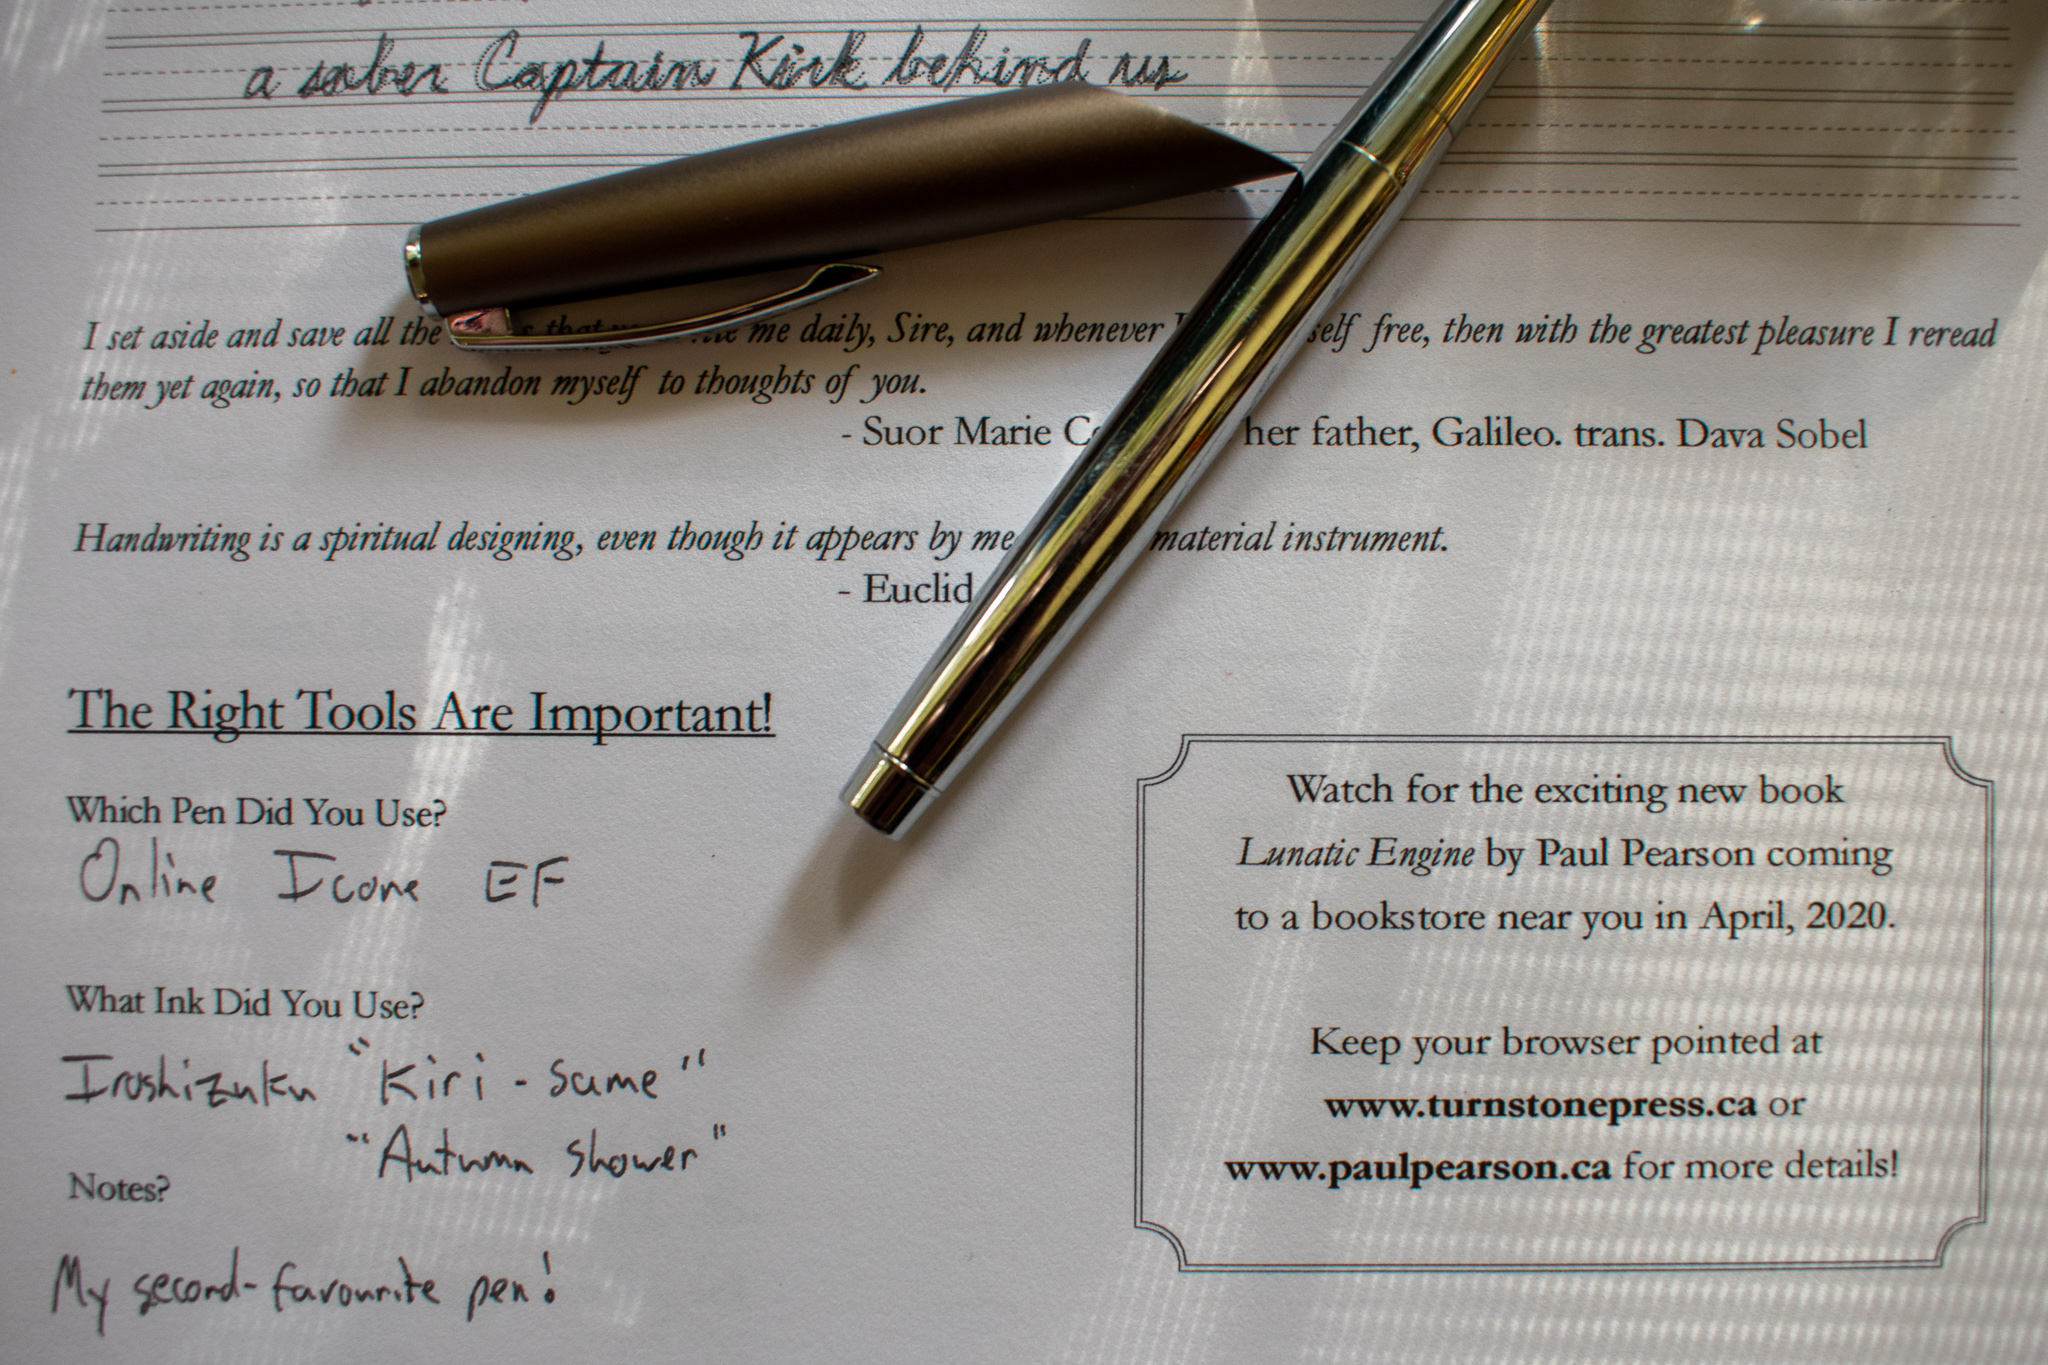 a sober Captain Kirk behind us
I set aside and save all the me daily, Sire, and whenever free, then with the greatest pleasure I reread
them yet again, so that I abandon myself to thoughts of you.
- Suor Marie her father, Galileo. trans. Dava Sobel
Handwriting is a spiritual designing, even though it appears by material instrument.
- Euclid
The Right Tools Are Important!
Which Pen Did You Use?
Online Icone EF
What Ink Did You Use?
Iroshizuku "Kiri - same"
"Autumn shower"
Notes?
My second-favourite pen!
Watch for the exciting new book
Lunatic Engine by Paul Pearson coming
to a bookstore near you in April, 2020.
Keep your browser pointed at
www.turnstonepress.ca or
www.paulpearson.ca for more details!